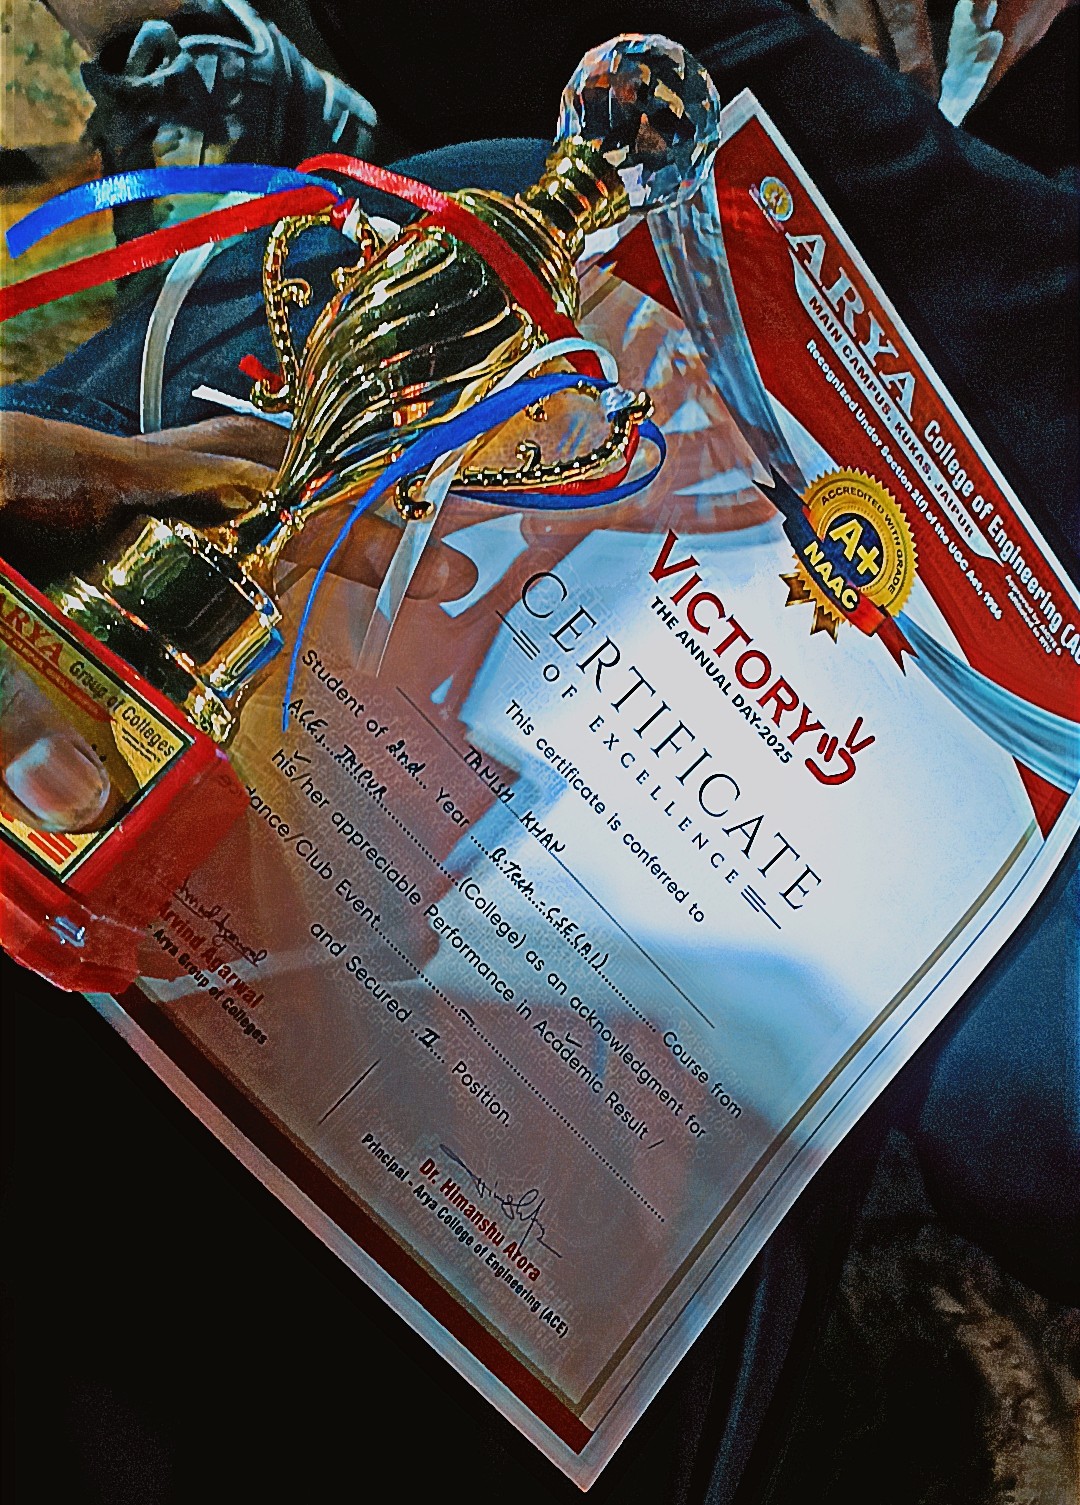 ARYA College of Engineering
MAIN CAMPUS, KUKAS, JAIPUR
Recognised Under Section 2(f) of the UGC Act, 1956
ACCREDITED WITH GRADE
A+
NAAC
VICTORY
THE ANNUAL DAY-2025
CERTIFICATE
OF EXCELLENCE
This certificate is conferred to
TANISH KHAN
Student of 2nd Year B.Tech CSE(AI) Course from
ACE, JAIPUR (College) as an acknowledgment for
his/her appreciable Performance in Academic Result /
dance/Club Event
and Secured II Position.
Arvind Agarwal
- Arya Group of Colleges
Dr. Himanshu Arora
Principal - Arya College of Engineering (ACE)
RYA Group of Colleges